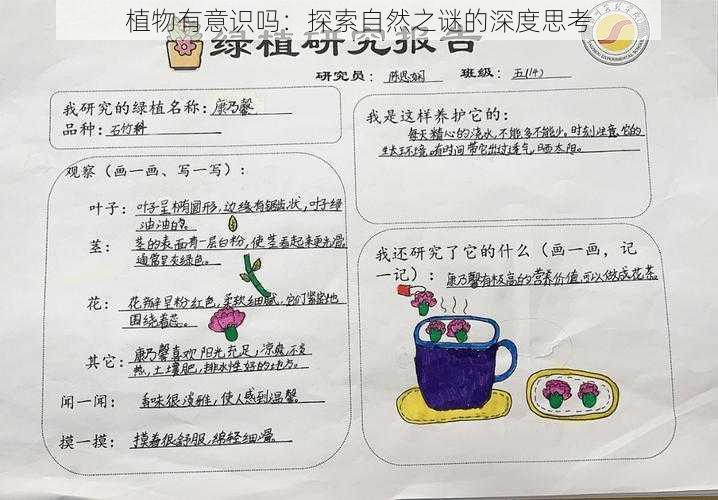 植物有意识吗：探索自然之谜的深度思考
绿植研究报告
研究员：陈思娴 班级：五(14)
我研究的绿植名称：康乃馨
品种：石竹科
观察（画一画、写一写）：
叶子：叶子呈椭圆形，边缘有锯齿状，叶子绿
油油的。
茎：茎的表面有一层白粉，使茎看起来更光滑
通常呈灰绿色。
花：花瓣呈粉红色，柔软细腻，它们紧密地
围绕着蕊。
其它：康乃馨喜欢阳光充足，凉爽，不炎
热，土壤肥，排水性好的地方。
闻一闻：香味很淡雅，使人感到温馨。
摸一摸：摸着很舒服，绵轻细滑。
我是这样养护它的：
每天精心的浇水，不能多不能少。时刻注意它的
生太环境。有时间带它出过透气，日晒太阳。
我还研究了它的什么（画一画，记
一记）：康乃馨有极高的营养价值，可以做成花茶。